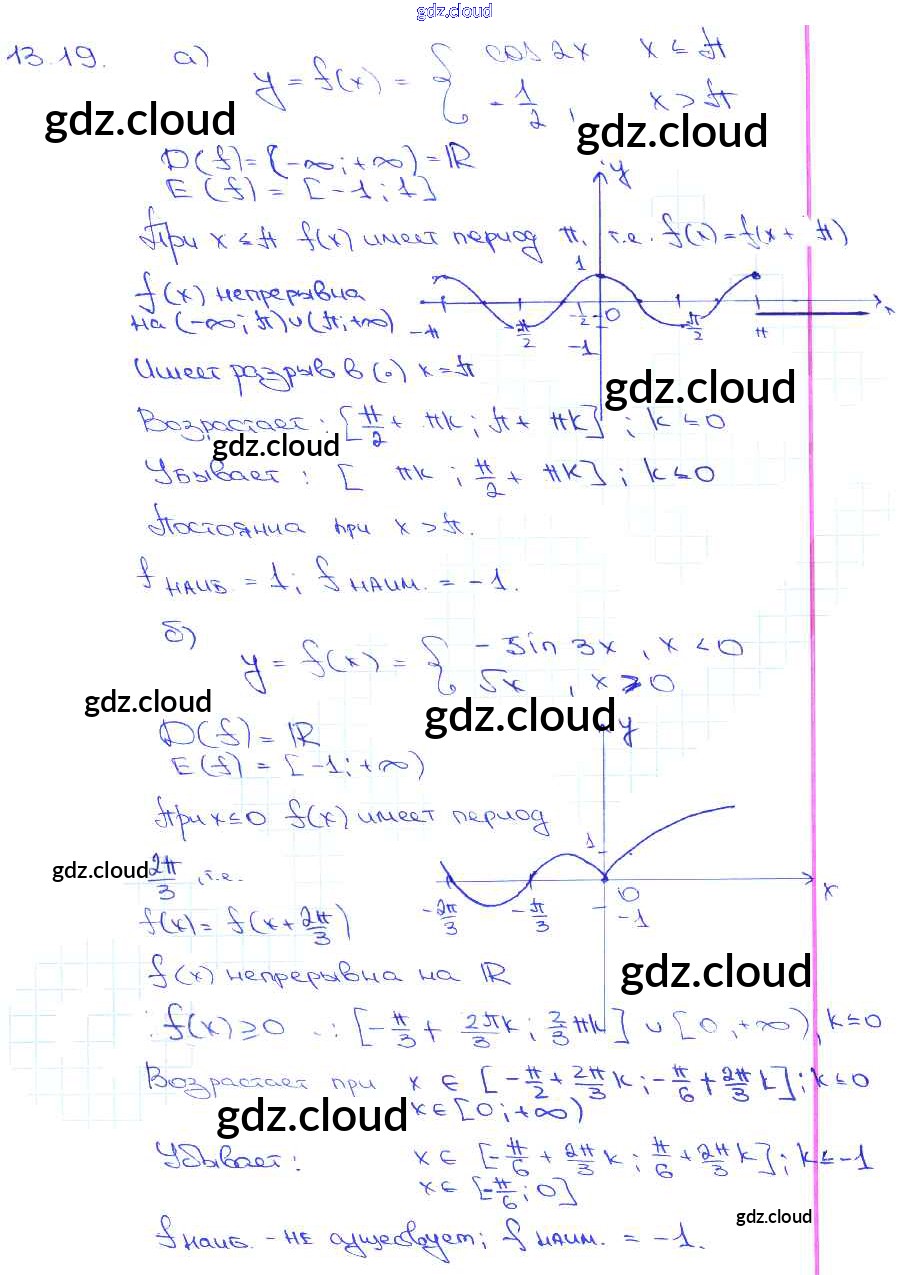 gdz.cloud
13.19. а) y = f(x) = { cos 2x x ≤ π
- 1/2, x > π
gdz.cloud gdz.cloud
D(f) = (-∞; +∞) = ℝ
E(f) = [-1; 1]
y
При x ≤ π f(x) имеет период π, т.е. f(x) = f(x + π)
f(x) непрерывна
на (-∞; π) ∪ (π; +∞)
1
-π -π/2 -1/2 0 π/2 π x
-1
Имеет разрыв в (·) x = π
gdz.cloud
Возрастает: [π/2 + πk; π + πk]; k ≤ 0
gdz.cloud
Убывает: [ πk; π/2 + πk]; k ≤ 0
Постоянна при x > π.
f наиб. = 1; f наим. = -1.
б)
y = f(x) = { -sin 3x, x < 0
√x, x ≥ 0
gdz.cloud gdz.cloud
D(f) = ℝ
y
E(f) = [-1; +∞)
При x ≤ 0 f(x) имеет период
1
gdz.cloud
2π/3, т.е.
x
f(x) = f(x + 2π/3)
-2π/3 -π/3 0
-1
f(x) непрерывна на ℝ
gdz.cloud
: f(x) ≥ 0 ∴ [-π/3 + 2πk/3; 2/3 πk] ∪ [0, +∞), k ≤ 0
Возрастает при x ∈ [-π/2 + 2π/3 k; -π/6 + 2π/3 k]; k ≤ 0
x ∈ [0; +∞)
gdz.cloud
Убывает: x ∈ [-π/6 + 2π/3 k; π/6 + 2π/3 k]; k ≤ -1
x ∈ [-π/6; 0]
gdz.cloud
f наиб. - не существует; f наим. = -1.